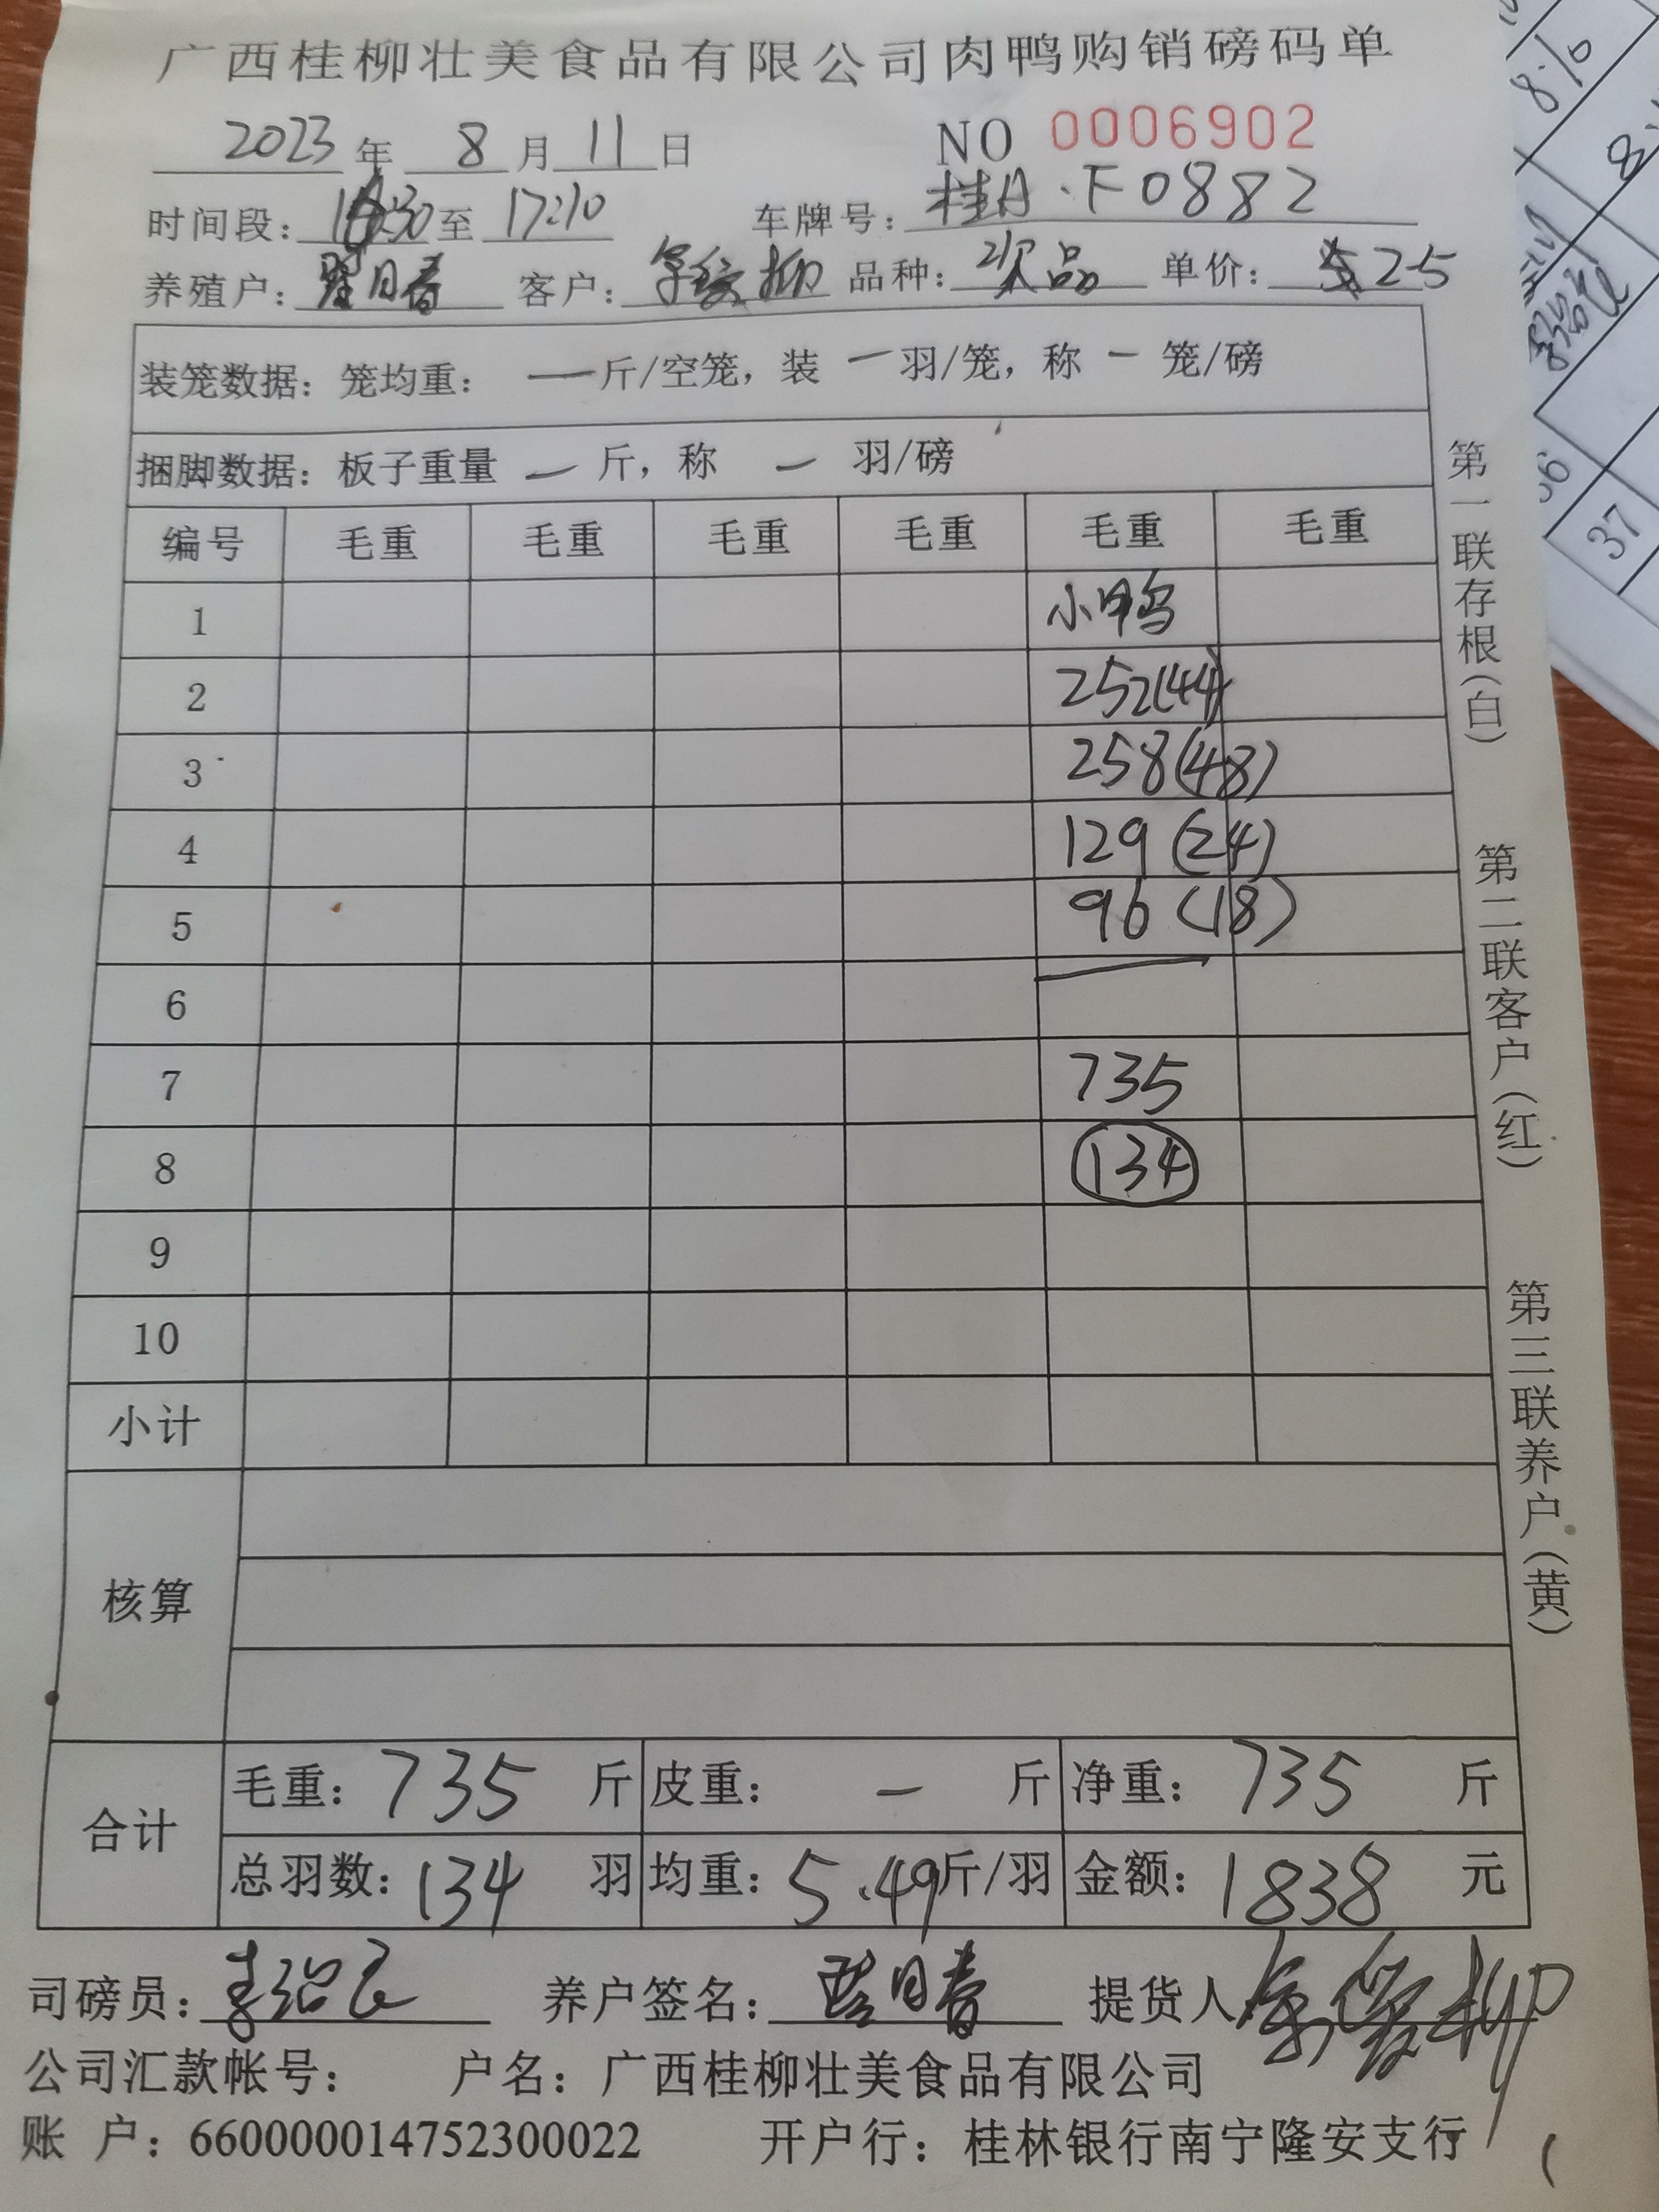 广西桂柳壮美食品有限公司肉鸭购销磅码单
2023年 8月11日 NO 0006902
时间段:30至17:10 车牌号:桂A·F0882
养殖户:月春 客户: 品种:次品 单价:2.5
装笼数据:笼均重: 一斤/空笼,装 一羽/笼,称 一 笼/磅
捆脚数据:板子重量 一 斤,称 一 羽/磅
编号 毛重 毛重 毛重 毛重 毛重 毛重
1 小鸭
2 252(44)
3 258(48)
4 129(24)
5 96(18)
6
7 735
8 134
9
10
小计
核算
合计 毛重:735 斤 皮重: 一 斤 净重:735 斤
总羽数:134 羽 均重:5.49斤/羽 金额:1838 元
司磅员: 养户签名:月春 提货人
公司汇款帐号: 户名:广西桂柳壮美食品有限公司
账 户:660000014752300022 开户行:桂林银行南宁隆安支行
第一联存根(白) 第二联客户(红) 第三联养户(黄)
8.10
37